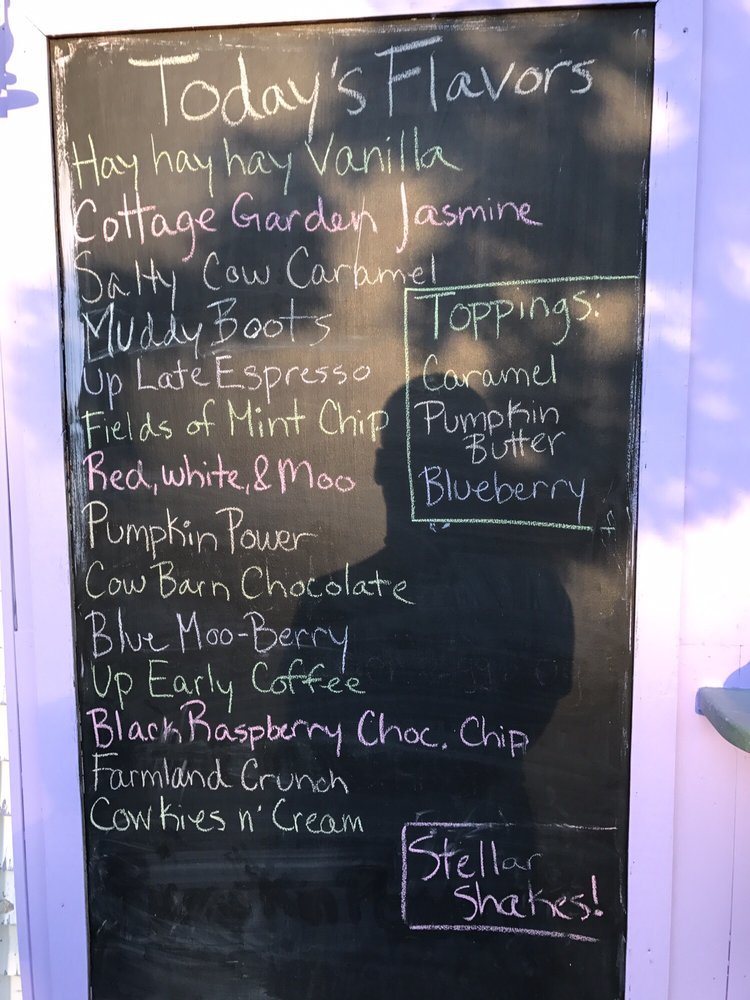 Today's Flavors
Hay hay hay Vanilla
Cottage Garden Jasmine
Salty Cow Caramel
Muddy Boots
Up Late Espresso
Fields of Mint Chip
Red, white, & Moo
Pumpkin Power
Cow Barn Chocolate
Blue Moo-Berry
Up Early Coffee
Black Raspberry Choc. Chip
Farmland Crunch
Cowkies n' Cream
Toppings:
Caramel
Pumpkin
Butter
Blueberry
Stellar
Shakes!